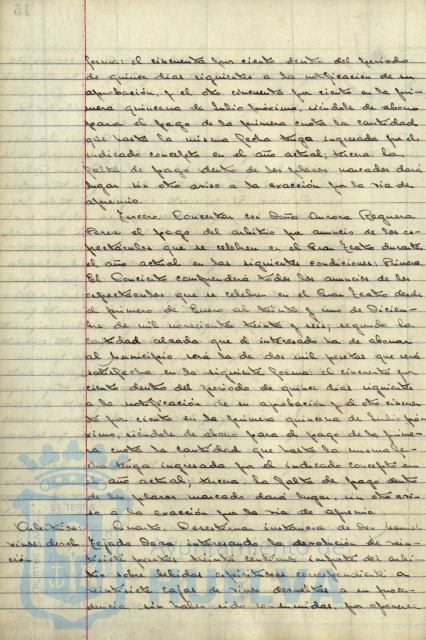 forma: el cincuenta por ciento dentro del periodo
de quince días siguientes a la notificación de su
aprobación, y el otro cincuenta por ciento en la pri-
mera quincena de Julio próximo, siéndole de abono
para el pago de la primera cuota la cantidad
que hasta la misma fecha tenga ingresada por el
indicado concepto en el año actual; tercera la
falta de pago dentro de los plazos marcados dará
lugar sin otro aviso a la exacción por la vía de
apremio.
Tercero. Concertar con Doña Aurora Reguera
Perea el pago del arbitrio por anuncio de los es-
pectáculos que se celebren en el Gran Teatro durante
el año actual en las siguientes condiciones: Primera
El Concierto comprenderá todos los anuncios de los
espectáculos que se celebren en el Gran Teatro desde
el primero de Enero al treinta y uno de Diciem-
bre de mil novecientos treinta y seis; segundo la
cantidad alzada que el interesado ha de abonar
al Municipio será la de dos mil pesetas que será
satisfecha en la siguiente forma: el cincuenta por
ciento dentro del periodo de quince días siguientes
a la notificación de su aprobación y el otro cincuen-
ta por ciento en la primera quincena de Julio pró-
ximo, siéndole de abono para el pago de la prime-
ra cuota la cantidad que hasta la misma fe-
cha tenga ingresada por el indicado concepto en
el año actual; tercera la falta de pago dentro
de los plazos marcado dará lugar, sin otro avi-
so a la exacción por la vía de apremio.
Cuarto. Desestimar instancia de Don
Tejada Lara, interesando la devolución de
pesetas treinta céntimos, importe del arbi-
trio sobre bebidas espirituosas correspondiente a
veintisiete cajas de vinos devueltos a su proce-
dencia, sin haber sido consumidos, por oponerse